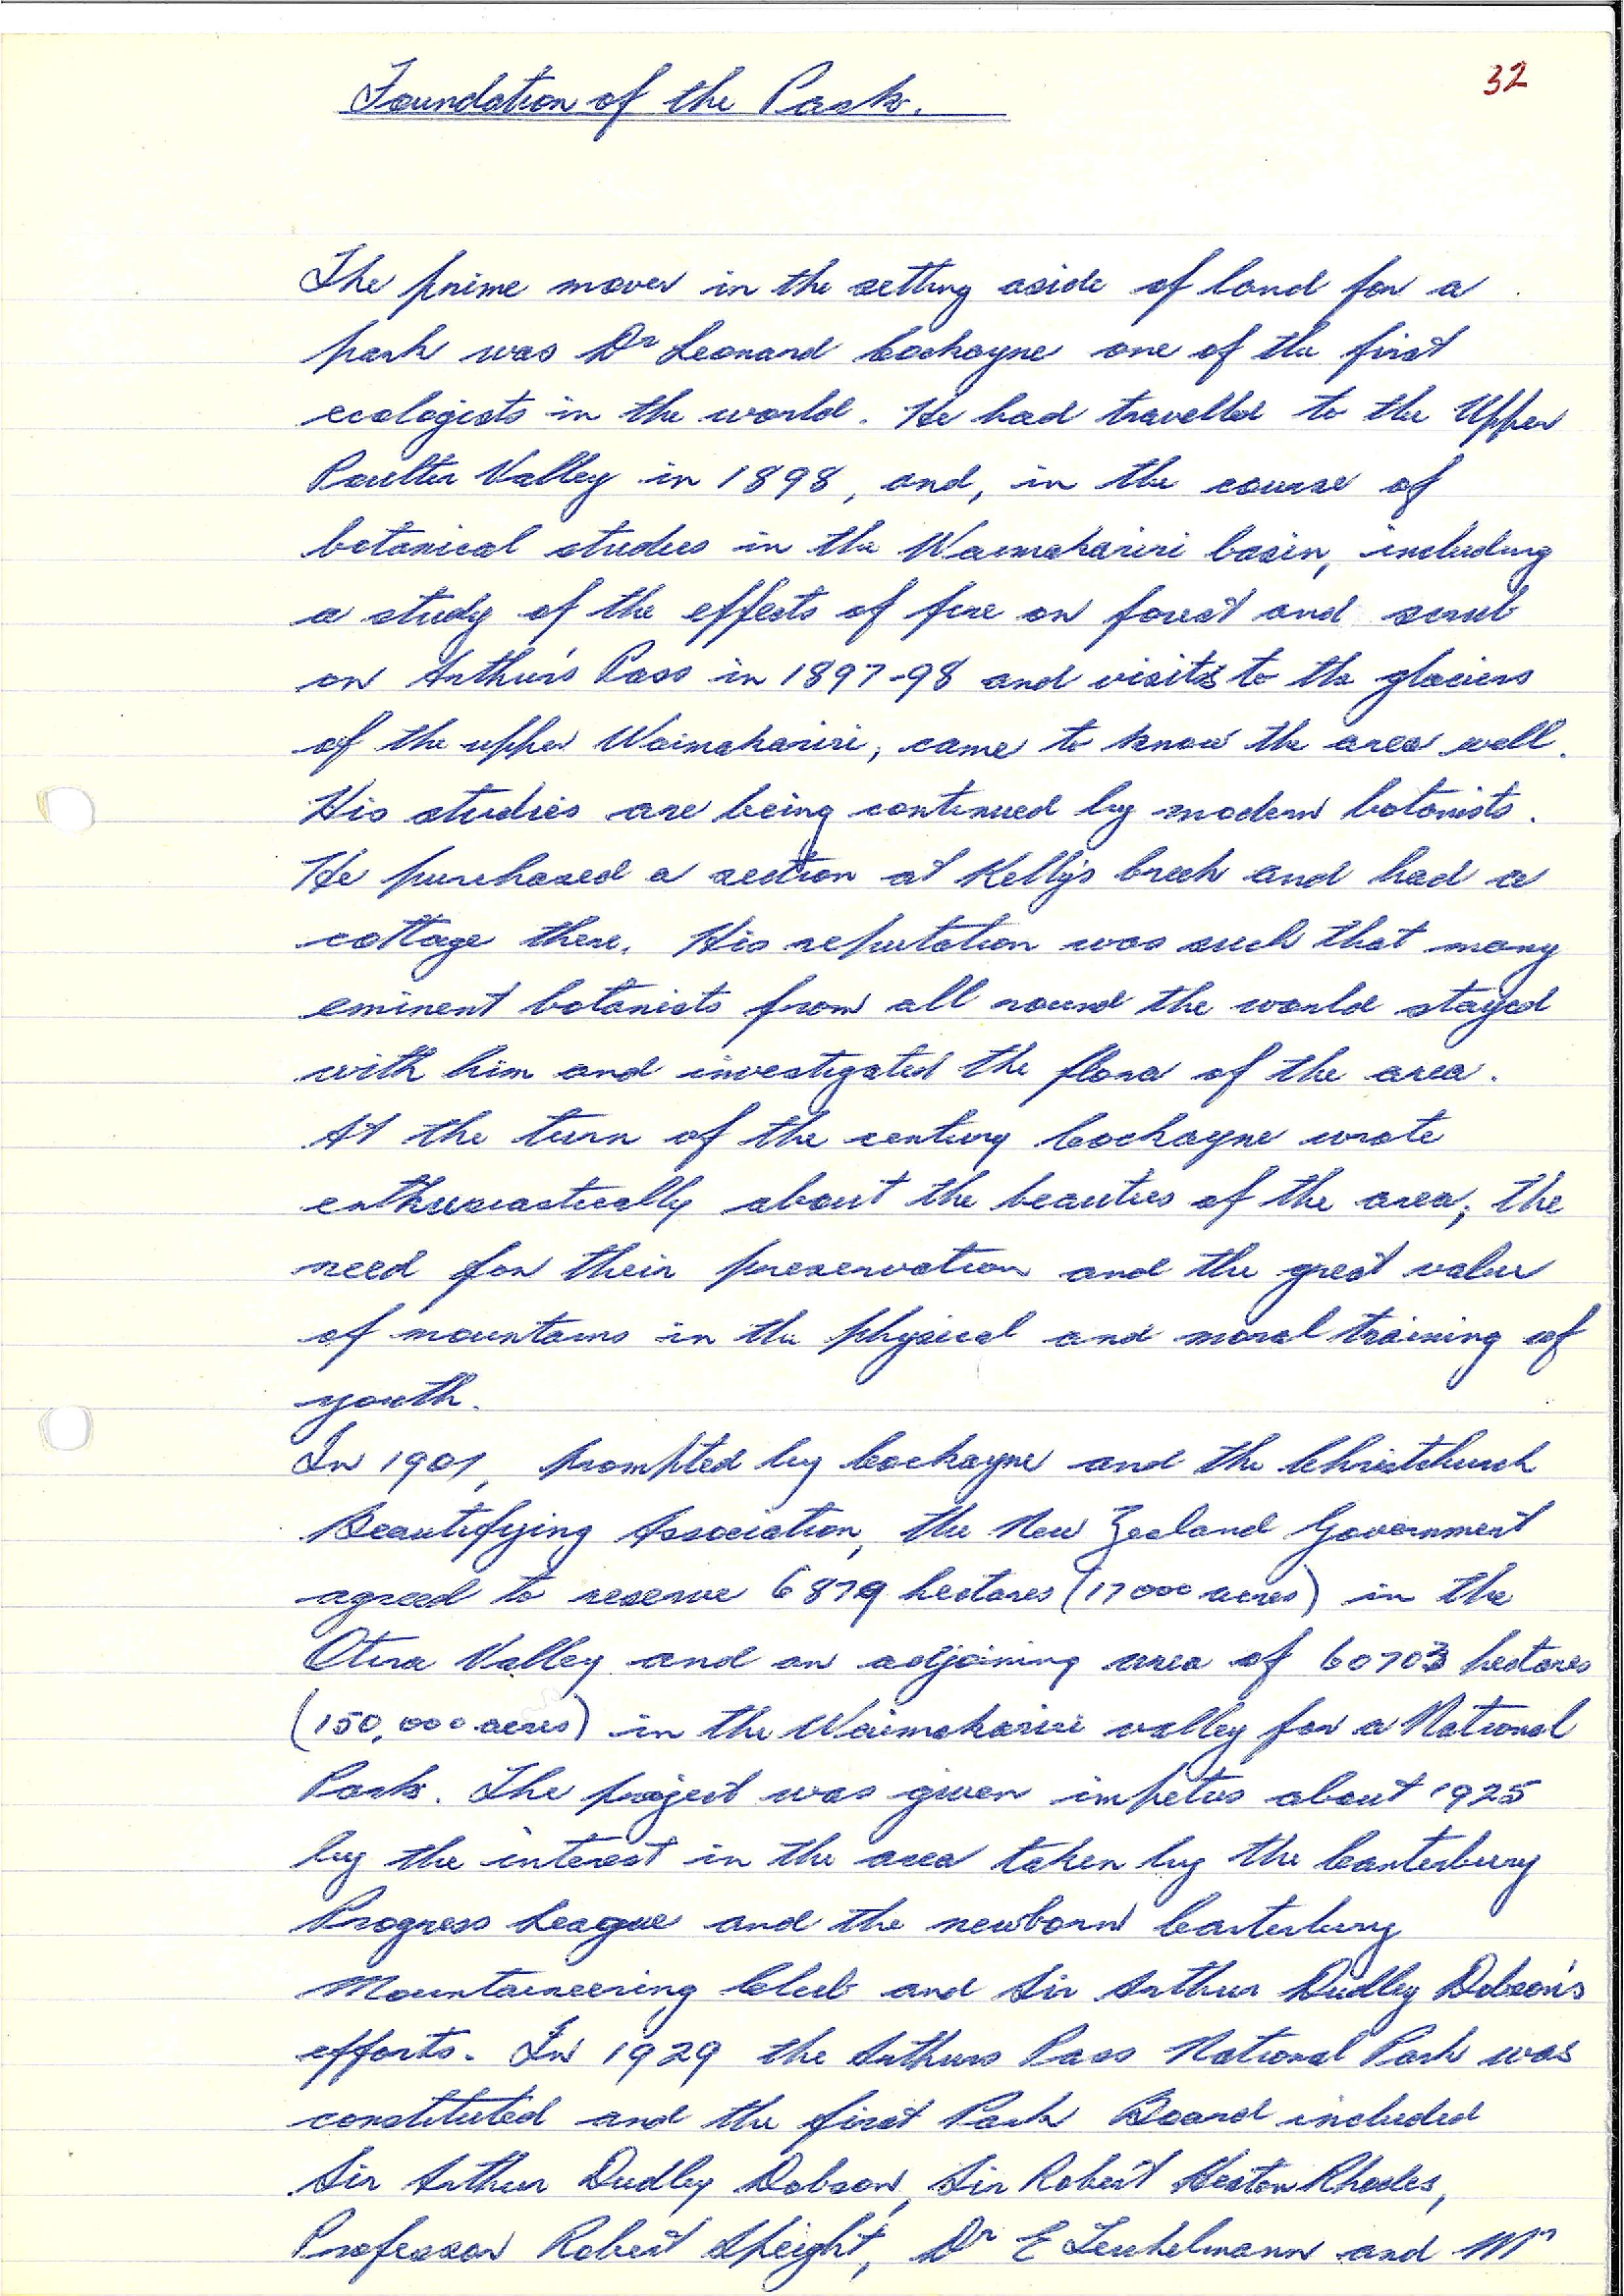 32
Foundation of the Park.
The prime mover in the setting aside of land for a
park was Dr Leonard Cockayne one of the first
ecologists in the world. He had travelled to the Upper
Poulter Valley in 1898, and, in the course of
botanical studies in the Waimakariri basin, including
a study of the effects of fire on forest and scrub
on Arthur's Pass in 1897-98 and visits to the glaciers
of the upper Waimakariri, came to know the area well.
His studies are being continued by modern botanists.
He purchased a section at Kellys Creek and had a
cottage there. His reputation was such that many
eminent botanists from all round the world stayed
with him and investigated the flora of the area.
At the turn of the century Cockayne wrote
enthusiastically about the beauties of the area, the
need for their preservation and the great value
of mountains in the physical and moral training of
youth.
In 1901, prompted by Cockayne and the Christchurch
Beautifying Association, the New Zealand Government
agreed to reserve 6879 hectares (17000 acres) in the
Otira Valley and an adjoining area of 60703 hectares
(150,000 acres) in the Waimakariri valley for a National
Park. The project was given impetus about 1925
by the interest in the area taken by the Canterbury
Progress League and the newborn Canterbury
Mountaineering Club and Sir Arthur Dudley Dobson's
efforts. In 1929 the Arthurs Pass National Park was
constituted and the first Park Board included
Sir Arthur Dudley Dobson, Sir Robert Heaton Rhodes,
Professor Robert Speight, Dr E Teichelmann and Mr